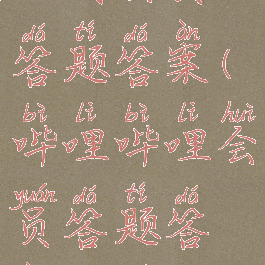 dá tí dá àn
答题答案(
bì lì bì lì huì
哔哩哔哩会
yuán dá tí dá
员答题答